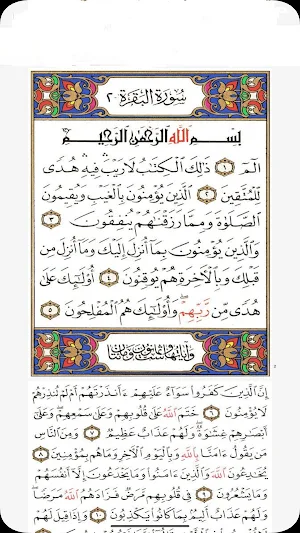 سُورَةُ البَقَرَة ٢
بِسْمِ ٱللَّهِ ٱلرَّحْمَٰنِ ٱلرَّحِيمِ
الٓمٓ ١ ذَٰلِكَ ٱلْكِتَٰبُ لَا رَيْبَ فِيهِ هُدًى
لِّلْمُتَّقِينَ ٢ ٱلَّذِينَ يُؤْمِنُونَ بِٱلْغَيْبِ وَيُقِيمُونَ
ٱلصَّلَوٰةَ وَمِمَّا رَزَقْنَٰهُمْ يُنفِقُونَ ٣
وَٱلَّذِينَ يُؤْمِنُونَ بِمَآ أُنزِلَ إِلَيْكَ وَمَآ أُنزِلَ مِن
قَبْلِكَ وَبِٱلْءَاخِرَةِ هُمْ يُوقِنُونَ ٤ أُو۟لَٰٓئِكَ عَلَىٰ
هُدًى مِّن رَّبِّهِمْ وَأُو۟لَٰٓئِكَ هُمُ ٱلْمُفْلِحُونَ ٥
وَآيَاتُهَا سِتٌّ وَثَمَانُونَ وَمِائَتَانِ
إِنَّ ٱلَّذِينَ كَفَرُوا۟ سَوَآءٌ عَلَيْهِمْ ءَأَنذَرْتَهُمْ أَمْ لَمْ تُنذِرْهُمْ
لَا يُؤْمِنُونَ ٦ خَتَمَ ٱللَّهُ عَلَىٰ قُلُوبِهِمْ وَعَلَىٰ سَمْعِهِمْ وَعَلَىٰٓ
أَبْصَٰرِهِمْ غِشَٰوَةٌ وَلَهُمْ عَذَابٌ عَظِيمٌ ٧ وَمِنَ ٱلنَّاسِ
مَن يَقُولُ ءَامَنَّا بِٱللَّهِ وَبِٱلْيَوْمِ ٱلْءَاخِرِ وَمَا هُم بِمُؤْمِنِينَ ٨
يُخَٰدِعُونَ ٱللَّهَ وَٱلَّذِينَ ءَامَنُوا۟ وَمَا يَخْدَعُونَ إِلَّآ أَنفُسَهُمْ
وَمَا يَشْعُرُونَ ٩ فِى قُلُوبِهِم مَّرَضٌ فَزَادَهُمُ ٱللَّهُ مَرَضًا
وَلَهُمْ عَذَابٌ أَلِيمٌۢ بِمَا كَانُوا۟ يَكْذِبُونَ ١٠ وَإِذَا قِيلَ لَهُمْ